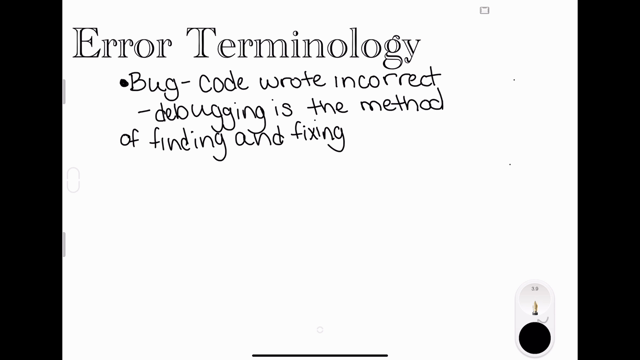 Error Terminology
•Bug - code wrote incorrect
- debugging is the method
of finding and fixing